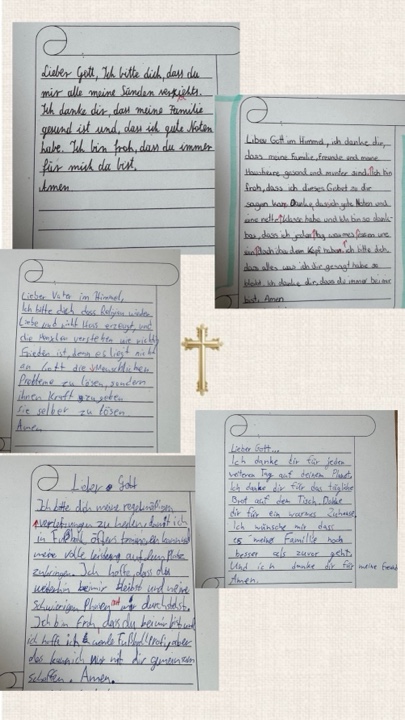 Lieber Gott, Ich bitte dich, dass du
mir alle meine Sünden verziehts.
Ich danke dir, dass meine Familie
gesund ist und, dass ich gute Noten
habe. Ich bin froh, dass du immer
für mich da bist.
Amen.
Lieber Gott im Himmel, ich danke dir,
dass meine Familie, Freunde und meine
Haustiere gesund und munter sind. Ich bin
froh, dass ich dieses Gebet zu dir
sagen kann. Danke, dass ich gute Noten und
eine nette Klasse habe und ich bin so dank-
bar, dass ich jeden Tag warmes Essen und
ein Dach über dem Kopf habe. Ich bitte dich,
dass alles was ich dir gesagt habe so
bleibt. Ich danke dir, dass du immer bei mir
bist. Amen
Lieber Vater im Himmel,
Ich bitte dich dass Religion wieder
Liebe und nicht Hass erzeugt, und
die Menschen verstehen wie wichtig
Frieden ist, denn es liegt nicht
an Gott die Menschlichen
Probleme zu lösen, sondern
ihnen Kraft zu geben
sie selber zu lösen.
Amen.
Lieber Gott...
Ich danke dir für jeden
weiteren Tag auf deinem Planet.
Ich danke dir für das tägliche
Brot auf dem Tisch. Danke
dir für ein warmes Zuhause.
Ich wünsche mir dass
es meiner Familie noch
besser als zuvor geht.
Und ich danke dir für meine Freunde
Amen.
Lieber Gott
Ich bitte dich meine regelmäßigen
verletzungen zu heilen damit ich
in Fußball öfters trainieren kann und
meine volle leistung auf dem Platz
zu bringen. Ich hoffe, dass du
weiterhin bei mir bleibst und meine
schwierigen Phasen mit mir durchlebst.
Ich bin Froh, dass du bei mir bist und
ich hoffe ich werde Fußball Profi, aber
das kann ich nur mit dir gemeinsam
schaffen. Amen.